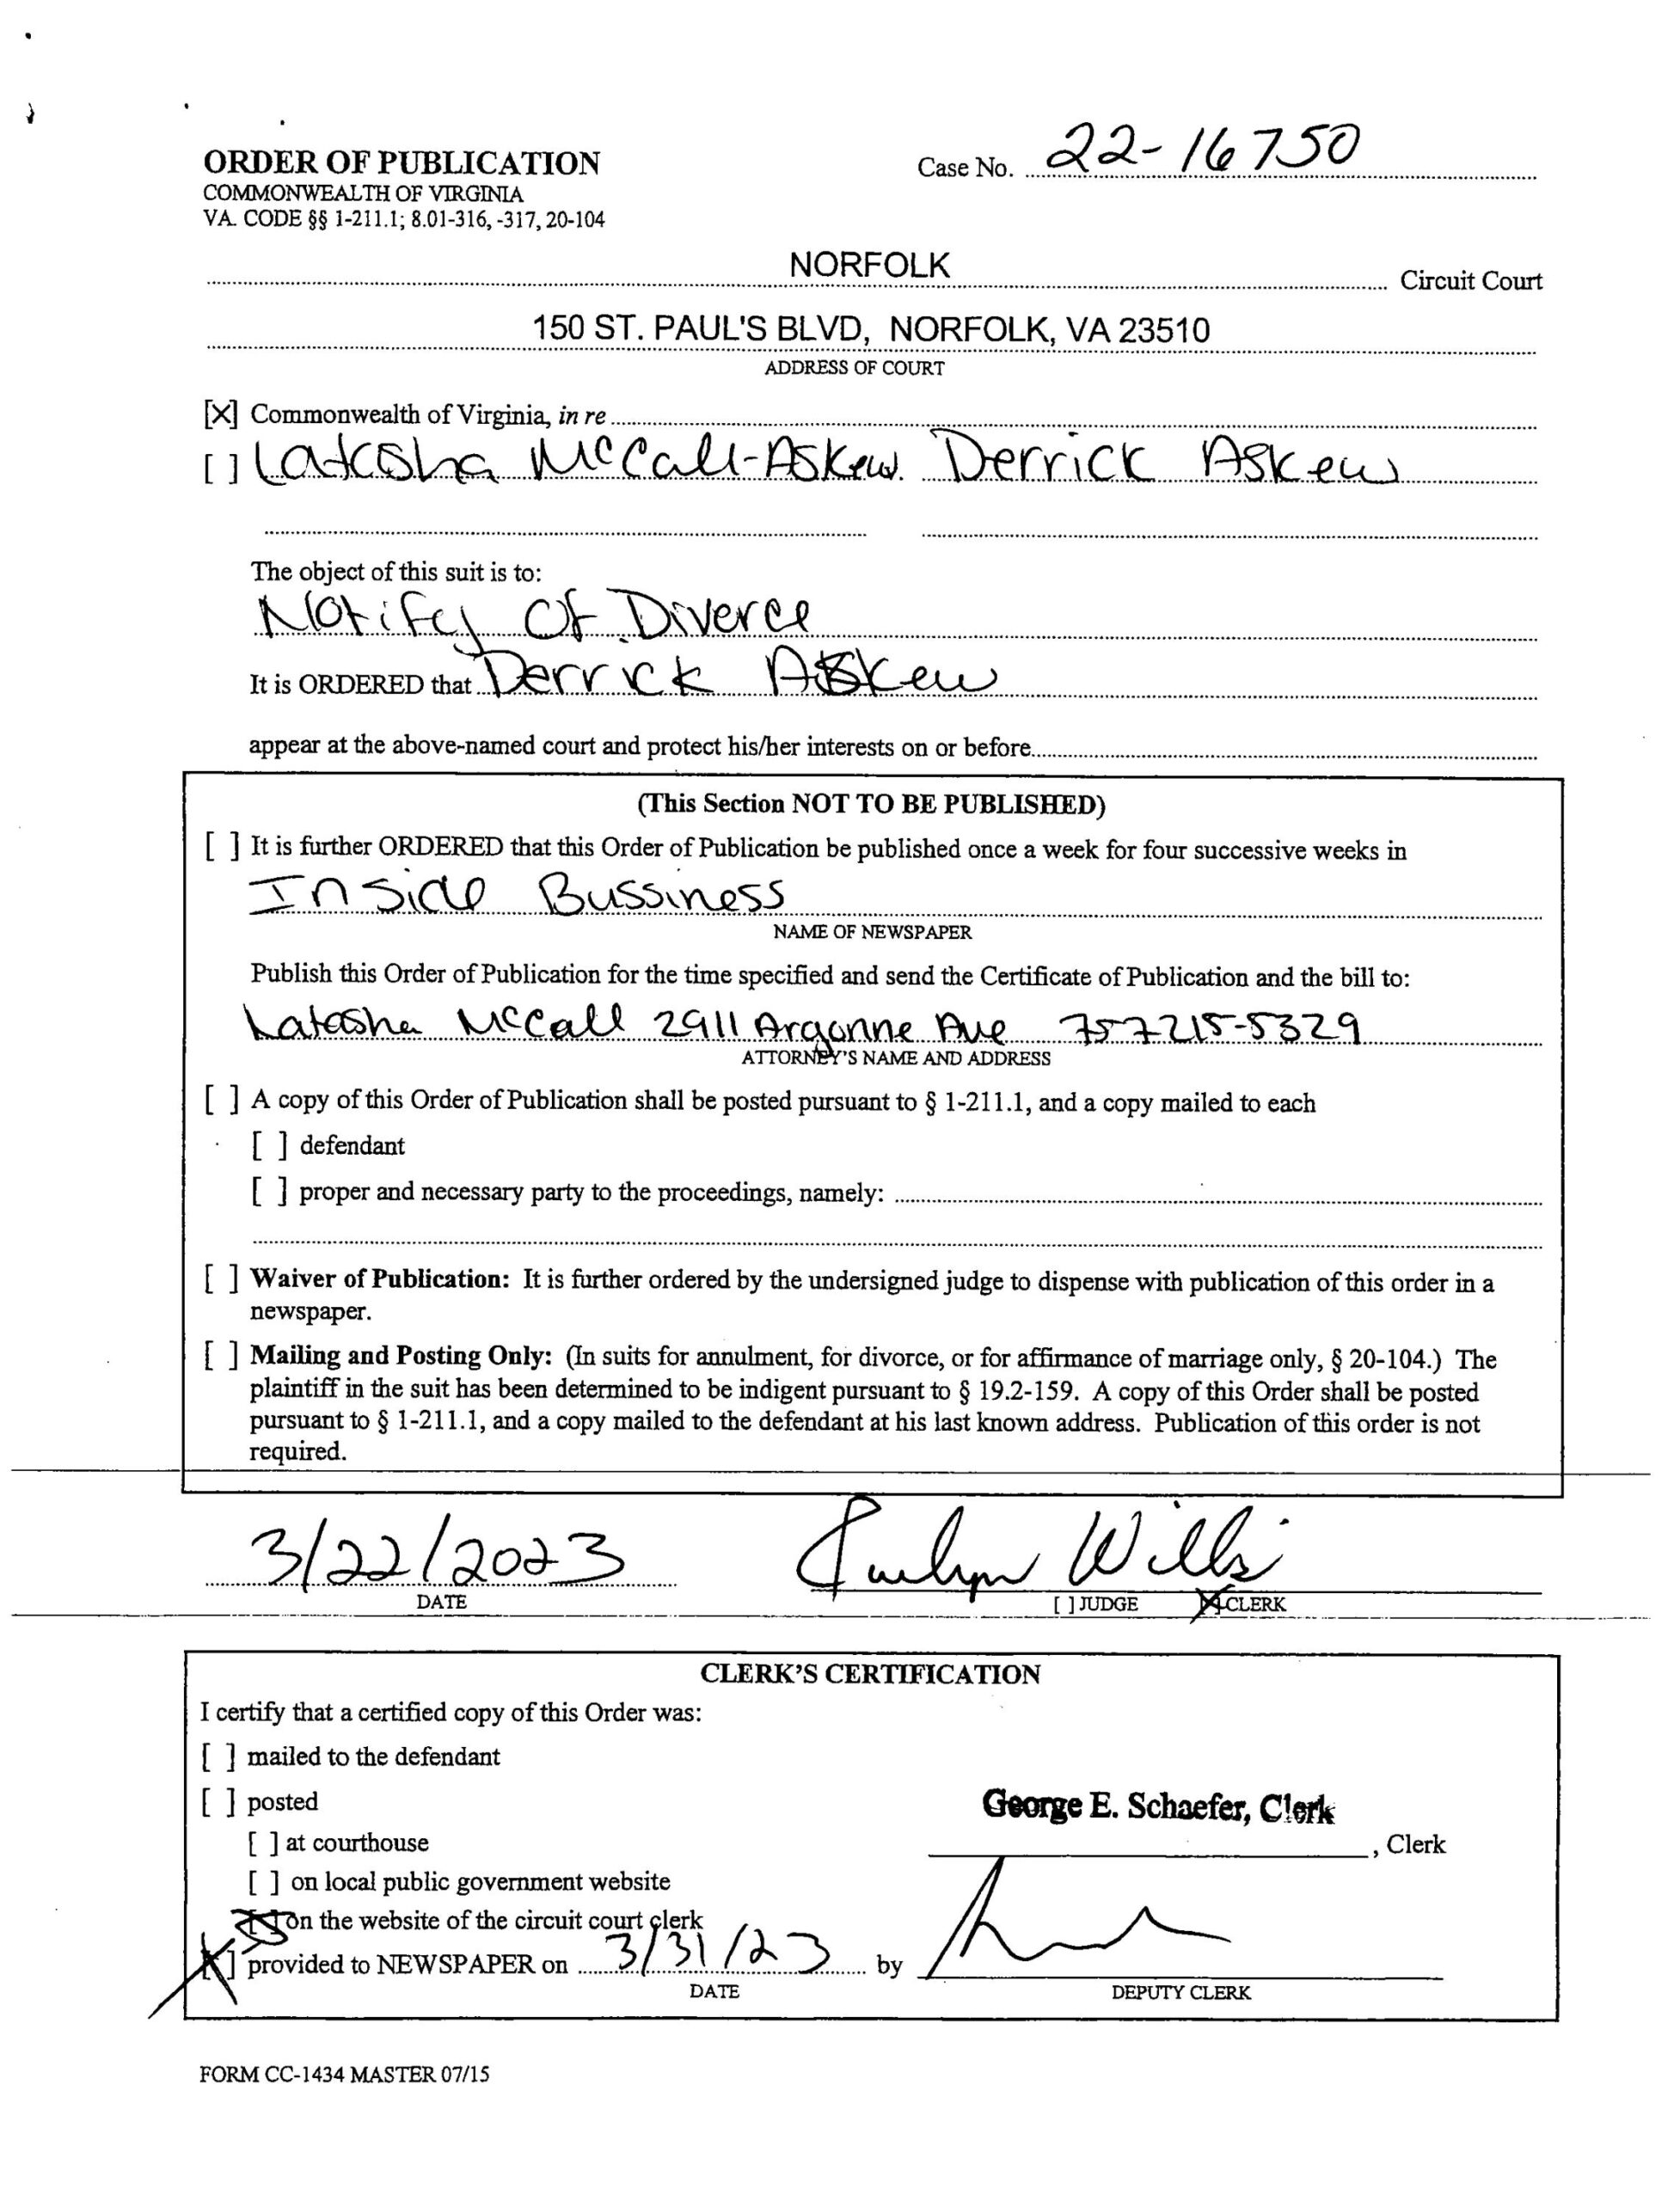 ORDER OF PUBLICATION
Case No. 22-16750
COMMONWEALTH OF VIRGINIA
VA. CODE §§ 1-211.1; 8.01-316, -317, 20-104
NORFOLK Circuit Court
150 ST. PAUL'S BLVD, NORFOLK, VA 23510
ADDRESS OF COURT
[X] Commonwealth of Virginia, in re
[ ] Latasha McCall-Askew. Derrick Askew
The object of this suit is to:
Notify Of Diverce
It is ORDERED that Derrick Askew
appear at the above-named court and protect his/her interests on or before
(This Section NOT TO BE PUBLISHED)
[ ] It is further ORDERED that this Order of Publication be published once a week for four successive weeks in
Inside Bussiness
NAME OF NEWSPAPER
Publish this Order of Publication for the time specified and send the Certificate of Publication and the bill to:
Latasha McCall 2911 Argonne Ave 757215-5329
ATTORNEY'S NAME AND ADDRESS
[ ] A copy of this Order of Publication shall be posted pursuant to § 1-211.1, and a copy mailed to each
[ ] defendant
[ ] proper and necessary party to the proceedings, namely:
[ ] Waiver of Publication: It is further ordered by the undersigned judge to dispense with publication of this order in a
newspaper.
[ ] Mailing and Posting Only: (In suits for annulment, for divorce, or for affirmance of marriage only, § 20-104.) The
plaintiff in the suit has been determined to be indigent pursuant to § 19.2-159. A copy of this Order shall be posted
pursuant to § 1-211.1, and a copy mailed to the defendant at his last known address. Publication of this order is not
required.
3/22/2023 Willis
DATE [ ] JUDGE [X] CLERK
CLERK'S CERTIFICATION
I certify that a certified copy of this Order was:
[ ] mailed to the defendant
[ ] posted
George E. Schaefer, Clerk
[ ] at courthouse
, Clerk
[ ] on local public government website
[ ] on the website of the circuit court clerk
[X] provided to NEWSPAPER on 3/31/23 by
DATE DEPUTY CLERK
FORM CC-1434 MASTER 07/15